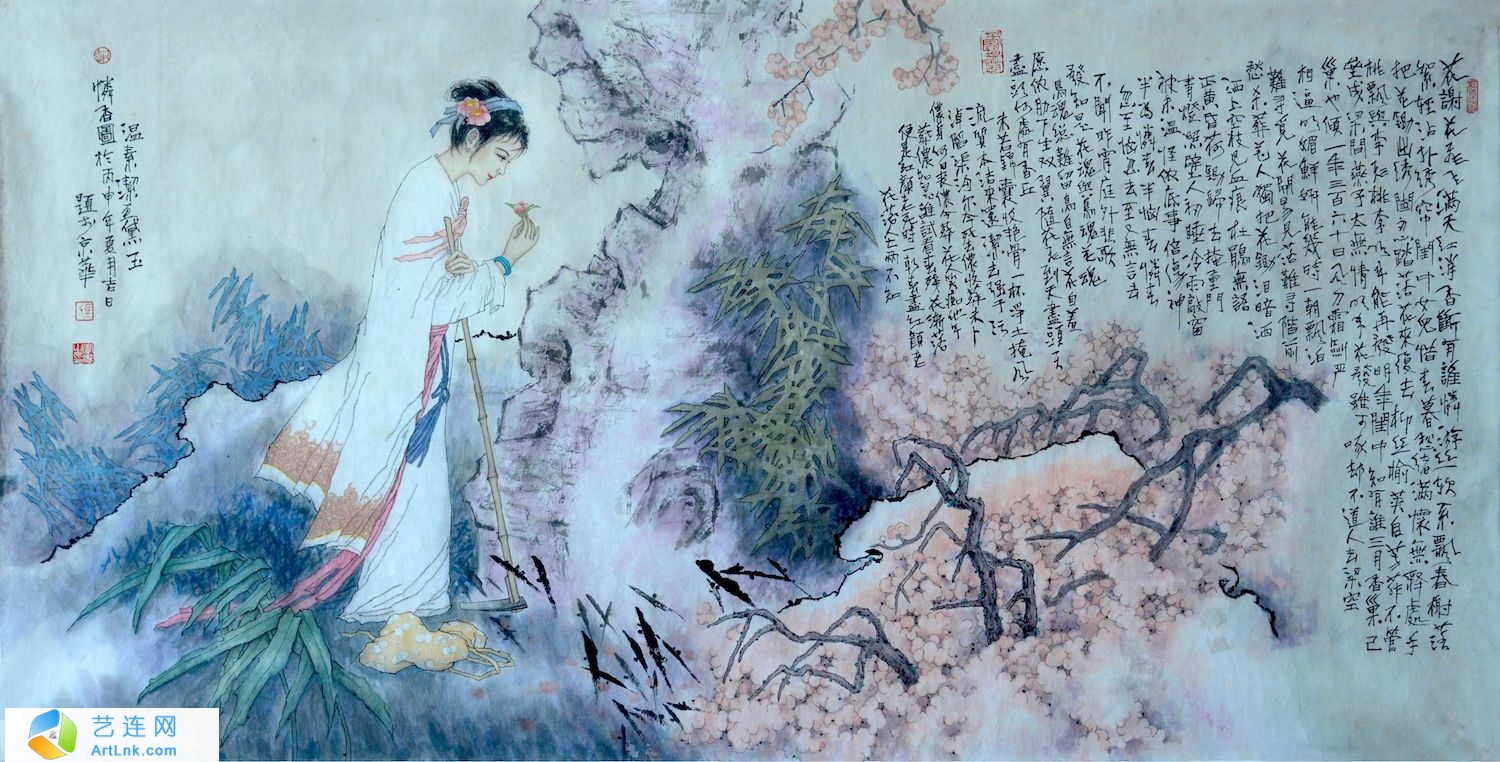 花謝花飛飛滿天紅消香斷有誰憐游丝軟系飄春榭落
絮輕沾扑绣帘閨中女兒惜春暮愁绪滿懷無释處手
把花锄出绣閨忍踏落花來復去柳丝榆荚自芳菲不管
桃飄與李飛桃李明年能再發明年閨中知有誰三月香巢已
垒成梁間燕子太無情明年花發雖可啄却不道人去梁空
巢也傾一年三百六十日風刀霜劍严
相逼明媚鮮妍能幾時一朝飄泊
難尋覓花開易見落難尋階前
愁杀葬花人獨把花锄泪暗洒
洒上空枝見血痕杜鵑無語
正黄昏荷锄歸去掩重門
青燈照壁人初睡冷雨敲窗
被未温怪侬底事倍傷神
半為憐春半惱春憐春
忽至惱忽去至又無言去
不聞昨宵庭外悲歌
發知是花魂與鳥魂花魂
鳥魂總難留鳥自無言花自羞
愿侬肋下生双翼随花飛到天盡頭天
盡頭何處有香丘
未若錦囊收艳骨一抔淨土掩風
流質本洁來還潔去强于污
淖陷渠沟尔今死去儂收葬未卜
儂身何日喪儂今葬花人笑痴他年
葬儂知是誰試看春殘花漸落
便是紅顏老死時一朝春盡紅顏老
花落人亡兩不知
温素潔写黛玉
憐香圖於丙申年夏月吉日
題於京華
艺连网
ArtLnk.com